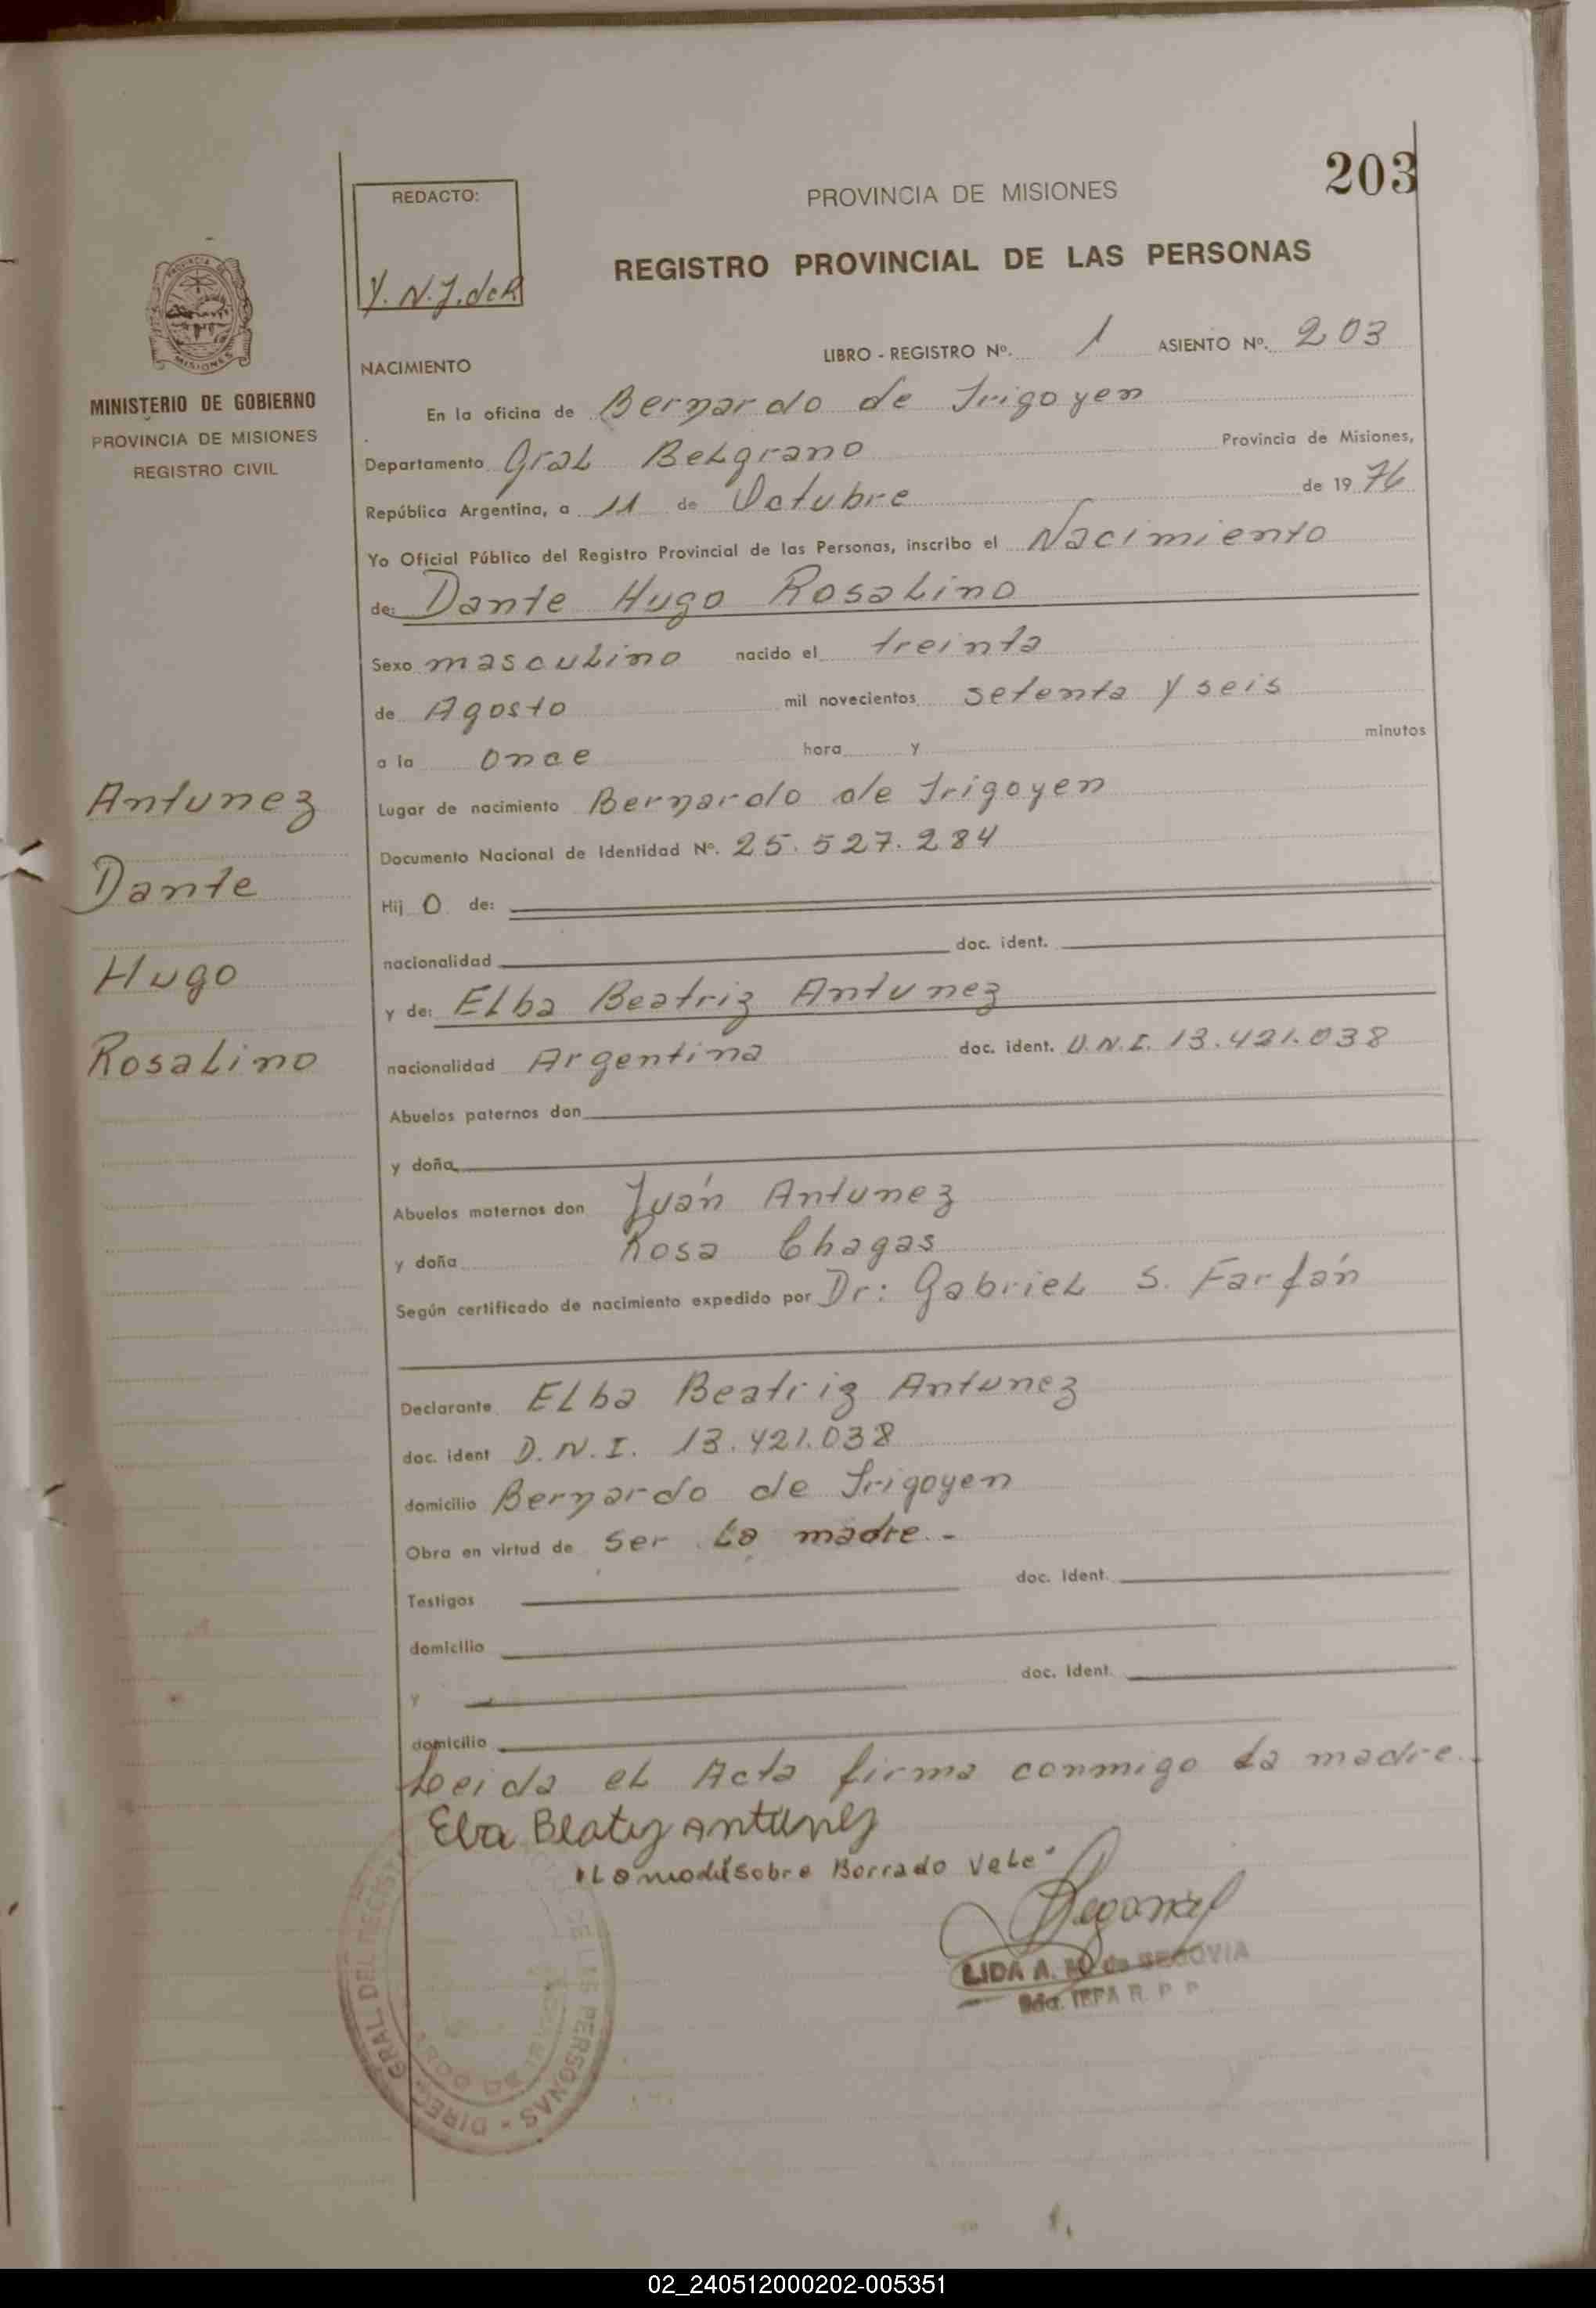 203
REDACTO:
Y. N. J. de R
PROVINCIA DE MISIONES
REGISTRO PROVINCIAL DE LAS PERSONAS
PROVINCIA DE
MISIONES
MINISTERIO DE GOBIERNO
PROVINCIA DE MISIONES
REGISTRO CIVIL
NACIMIENTO LIBRO - REGISTRO Nº. 1 ASIENTO Nº. 203
En la oficina de Bernardo de Irigoyen
Departamento Gral Belgrano Provincia de Misiones,
República Argentina, a 11 de Octubre de 19 76
Yo Oficial Público del Registro Provincial de las Personas, inscribo el Nacimiento
de: Dante Hugo Rosalino
Sexo masculino nacido el treinta
de Agosto mil novecientos setenta y seis
a la once hora y minutos
Lugar de nacimiento Bernardo de Irigoyen
Documento Nacional de Identidad Nº. 25.527.284
Hij o de:
nacionalidad doc. ident.
y de: Elba Beatriz Antunez
nacionalidad Argentina doc. ident. D.N.I. 13.421.038
Abuelos paternos don
y doña
Abuelos maternos don Juán Antunez
y doña Rosa Chagas
Según certificado de nacimiento expedido por Dr: Gabriel S. Farfán
Declarante Elba Beatriz Antunez
doc. ident D.N.I. 13.421.038
domicilio Bernardo de Irigoyen
Obra en virtud de ser la madre.-
Testigos doc. Ident.
domicilio
y doc. Ident.
domicilio
Leida el Acta firma conmigo la madre.
Antunez
Dante
Hugo
Rosalino
Elva Beatriz Antunez
sobre Borrado Vale"
LIDA A. de SEGOVIA
R. P. P
DIREC. GRAL DEL REGISTRO DE LAS PERSONAS
02_240512000202-005351